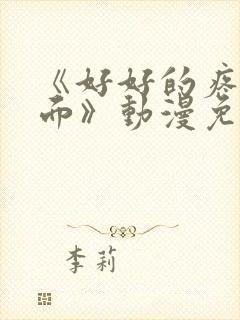 《好好的疼
而》動漫免
李莉